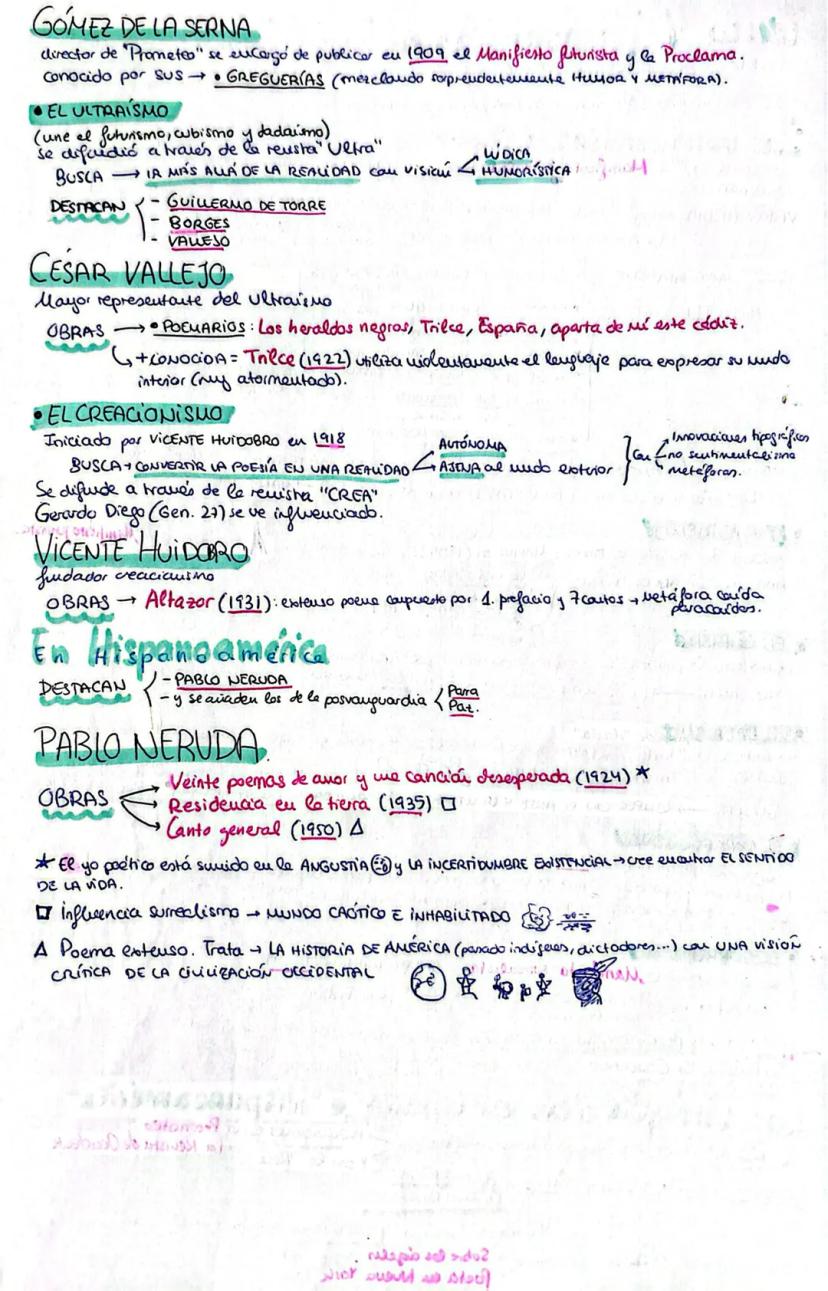 GÓMEZ DE LA SERNA
director de "Prometeo" se encargó de publicar en 1909 el Manifiesto futurista y la Proclama.
conocido por sus → • GREGUERÍAS (mezclando sorprendentemente HUMOR Y METÁFORA).
• EL ULTRAÍSMO
(une el futurismo, cubismo y dadaísmo)
Se difundió a través de la revista "Ultra"
BUSCA → IR MÁS ALLÁ DE LA REALIDAD con visión < LÚDICA
HUMORÍSTICA
DESTACAN - GUILLERMO DE TORRE
- BORGES
- VALLEJO
CÉSAR VALLEJO
Mayor representante del Ultraísmo
OBRAS → • POEMARIOS: Los heraldos negros, Trilce, España, aparta de mí este cádiz.
↳ + CONOCIDA = Trilce (1922) utiliza violentamente el lenguaje para expresar su mundo
interior (muy atormentado).
• EL CREACIONISMO
Iniciado por VICENTE HUIDOBRO en 1918
BUSCA → CONVERTIR LA POESÍA EN UNA REALIDAD < AUTÓNOMA
AJENA al mundo exterior } Con < innovaciones tipográficas
no sentimentalismo
metáforas.
Se difunde a través de la revista "CREA"
Gerardo Diego (Gen. 27) se ve influenciado.
VICENTE HUIDOBRO
fundador creacionismo
OBRAS → Altazor (1931): extenso poema compuesto por 1 prefacio y 7 cantos → Metáfora caída
paracaídas.
En Hispanoamérica
DESTACAN - PABLO NERUDA
- y se añaden los de la posvanguardia < Para
Pat.
PABLO NERUDA
OBRAS → Veinte poemas de amor y una canción desesperada (1924) ★
→ Residencia en la tierra (1935) □
→ Canto general (1950) △
★ El yo poético está sumido en la ANGUSTIA y LA INCERTIDUMBRE EXISTENCIAL → cree encontrar EL SENTIDO
DE LA VIDA.
□ Influencia surrealismo → MUNDO CAÓTICO E INHABILITADO
△ Poema extenso. Trata → LA HISTORIA DE AMÉRICA (pasado indígena, dictadores...) con UNA VISIÓN
CRÍTICA DE LA CIVILIZACIÓN OCCIDENTAL